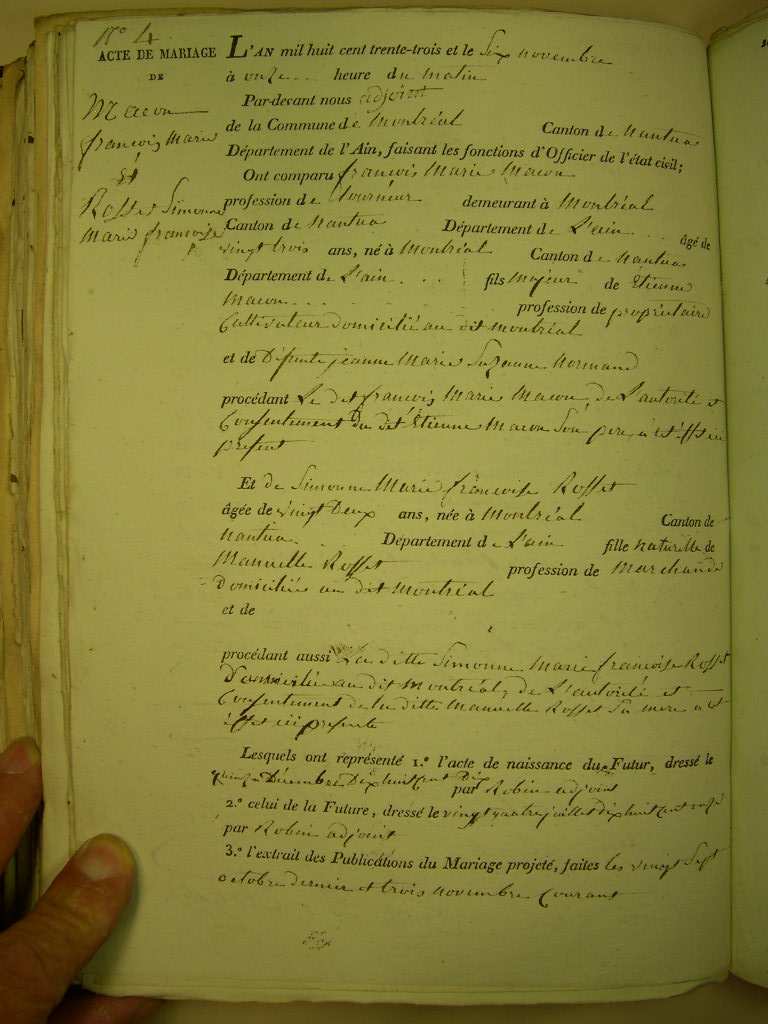 N.º 4.
ACTE DE MARIAGE
DE
Macon
françois Marie
Et
Rosset Simonne
Marie françoise
L'AN mil huit cent trente-trois et le Six novembre
à onze heure du matin
Par-devant nous adjoint
de la Commune de Montréal Canton de Nantua
Département de l'Ain, faisant les fonctions d'Officier de l'état civil;
Ont comparu françois Marie Macon
profession de tourneur demeurant à Montréal
Canton de Nantua Département de L'ain âgé de
vingt trois ans, né à Montréal Canton de Nantua
Département de L'ain fils Majeur de Etienne
Macon profession de propriétaire
Cultivateur domicilié au dit Montréal
et de Défunte jeanne Marie Suzanne Normand
procédant Le dit françois Marie Macon, de L'autorité et
Consentement du dit Etienne Macon Son père, à cet effet ici
présent
Et de Simonne Marie françoise Rosset
âgée de vingt Deux ans, née à Montréal Canton de
Nantua Département de L'ain fille naturelle de
Manuelle Rosset profession de Marchande
Domiciliée au dit Montréal
et de
procédant aussi La ditte Simonne Marie françoise Rosset
Domiciliée au dit Montréal, de L'autorité et
Consentement de la ditte Manuelle Rosset Sa mere à cet
effet ici présente
Lesquels ont représenté 1.º l'acte de naissance du Futur, dressé le
quinze Décembre Dix huit cent Dix par Robin adjoint
2.º celui de la Future, dressé le vingt quatre juillet dix huit cent onze
par Robin adjoint
3.º l'extrait des Publications du Mariage projeté, faites les vingt Sept
octobre dernier et trois novembre Courant